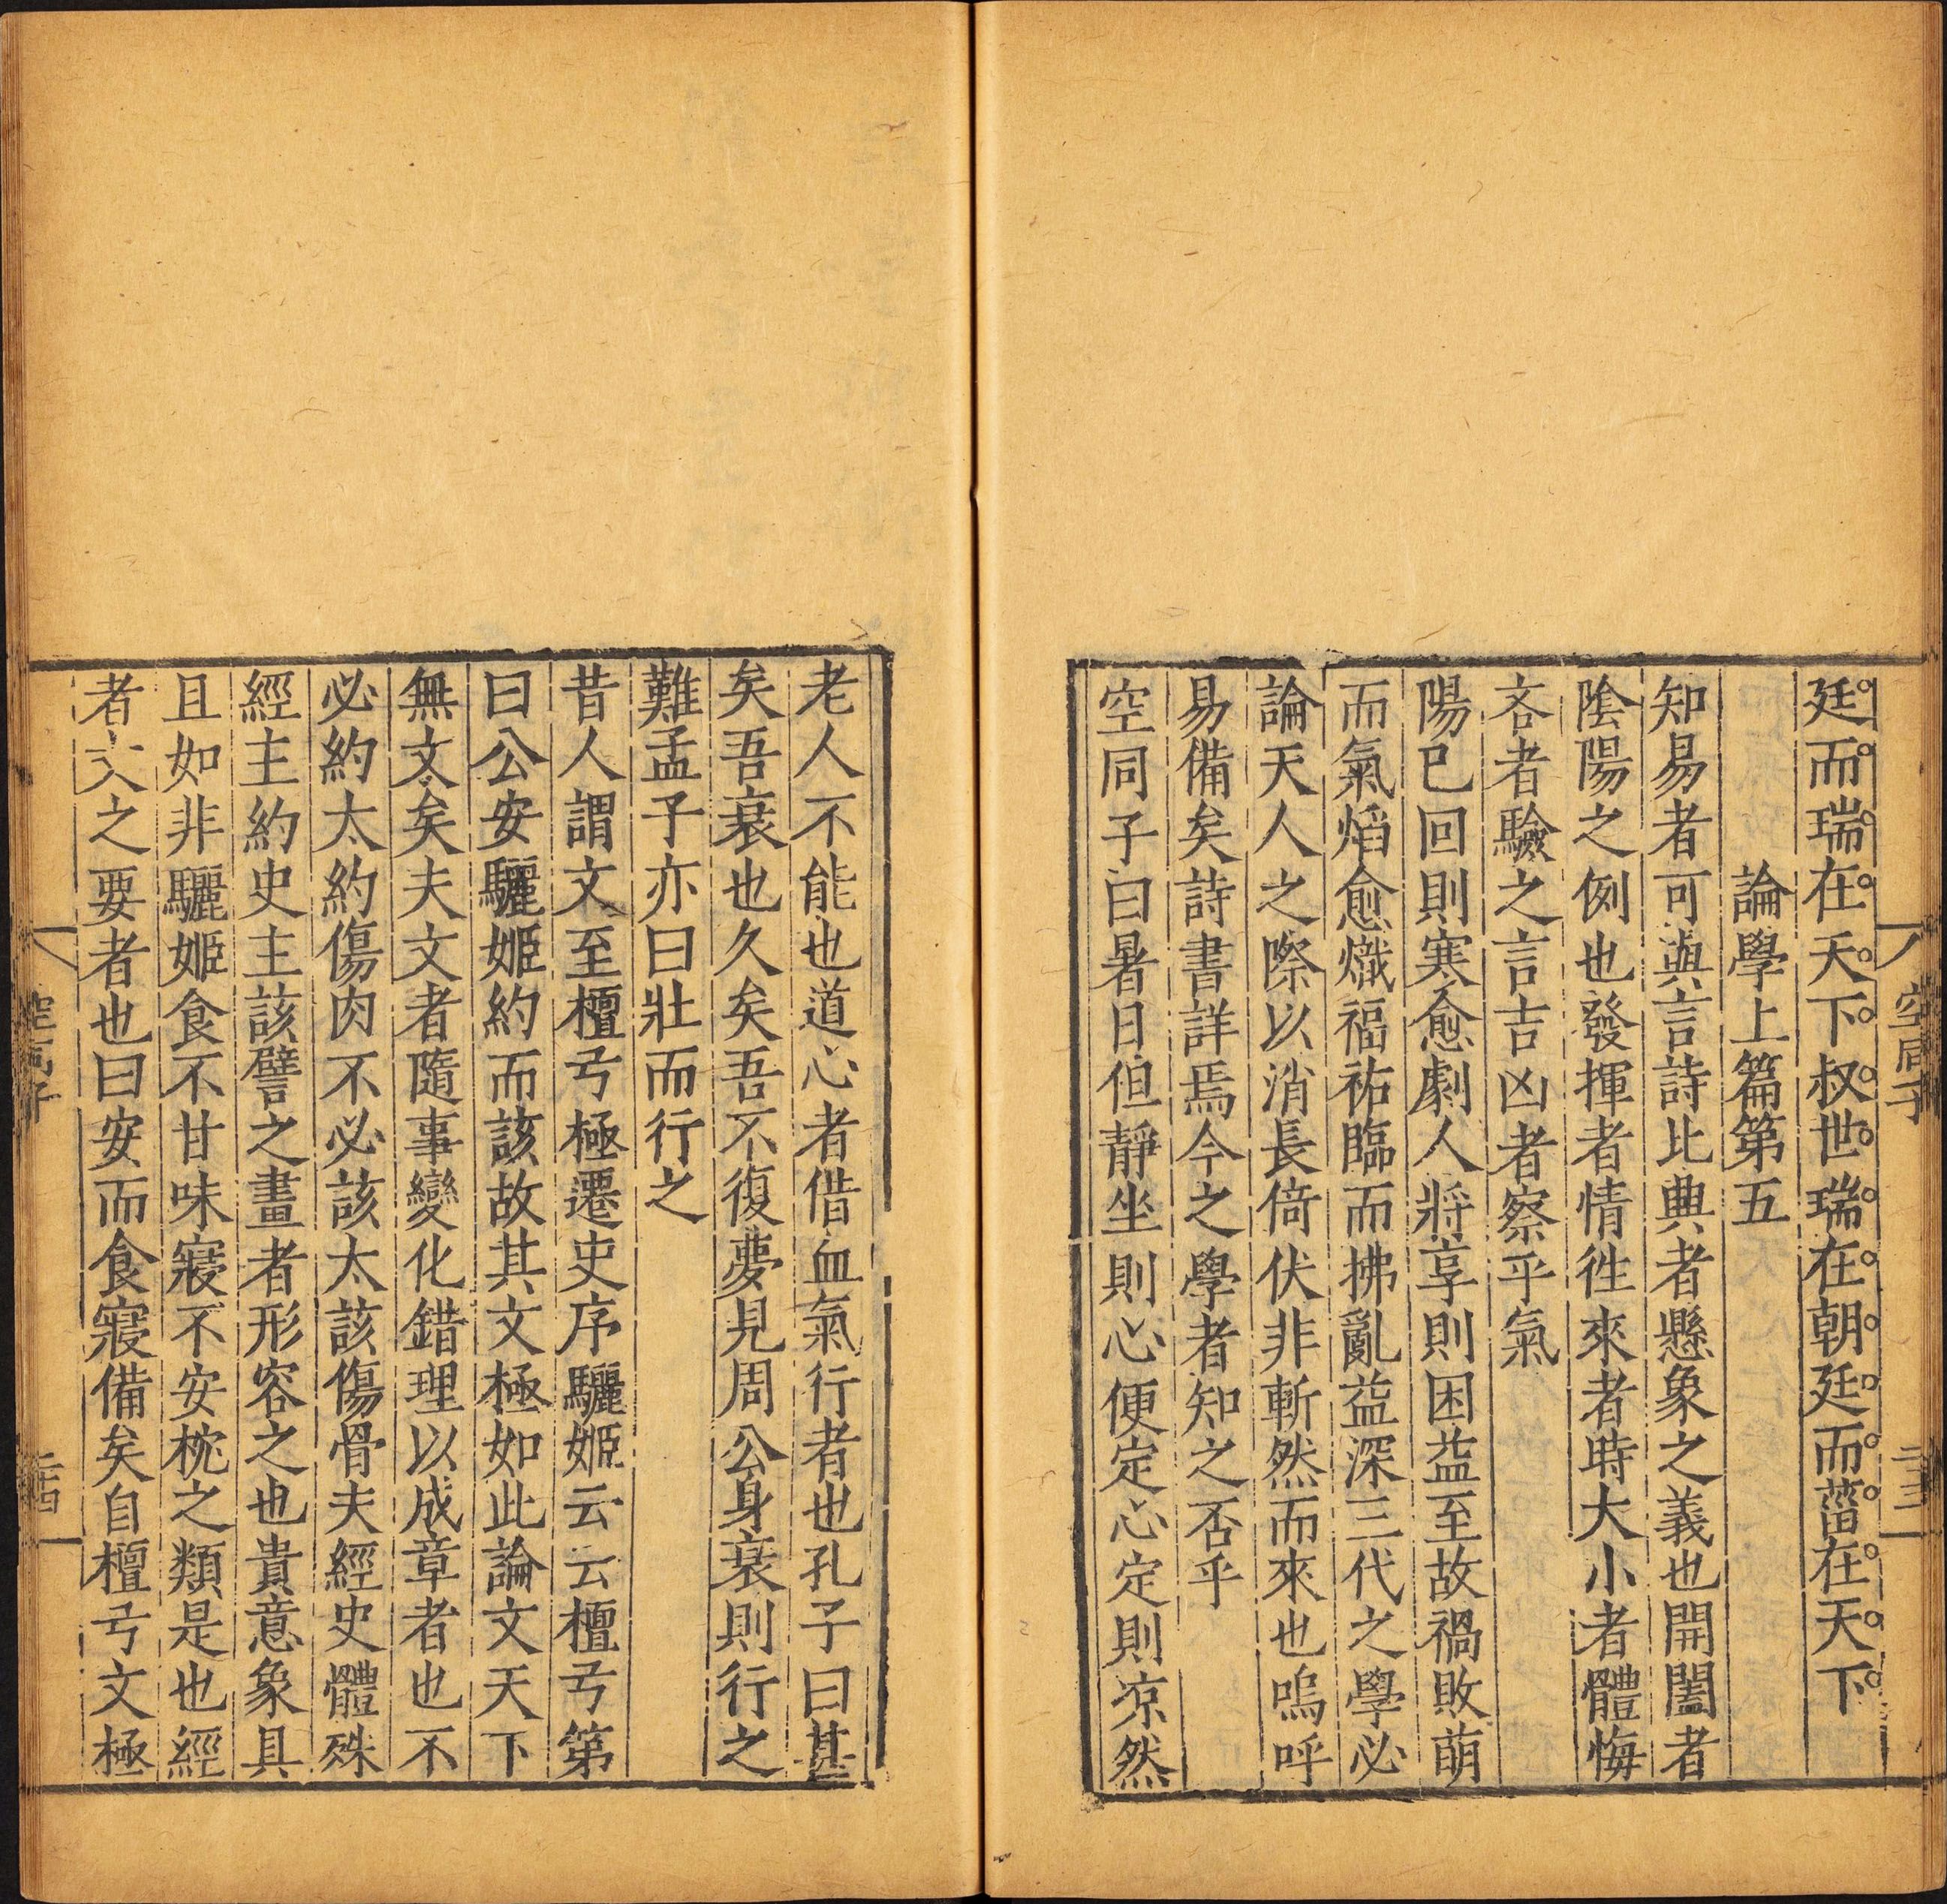 空同子 二十三
廷而瑞在天下叔世瑞在朝廷而菑在天下
論學上篇第五
知易者可與言詩比典者懸象之義也開闔者
陰陽之例也發揮者情徃來者時大小者體悔
吝者驗之言吉凶者察乎氣
陽已回則寒愈劇人將享則困益至故禍敗萌
而氣焰愈熾福祐臨而拂亂益深三代之學必
論天人之際以消長倚伏非斬然而來也嗚呼
易備矣詩書詳焉今之學者知之否乎
空同子曰暑日但靜坐則心便定心定則凉然
老人不能也道心者借血氣行者也孔子曰甚
矣吾衰也久矣吾不復夢見周公身衰則行之
難孟子亦曰壯而行之
昔人謂文至檀弓極遷史序驪姬云云檀弓第
曰公安驪姬約而該故其文極如此論文天下
無文矣夫文者隨事變化錯理以成章者也不
必約太約傷肉不必該太該傷骨夫經史體殊
經主約史主該譬之畫者形容之也貴意象具
且如非驪姬食不甘味寢不安枕之類是也經
者文之要者也曰安而食寢備矣自檀弓文極
空同子 二十四